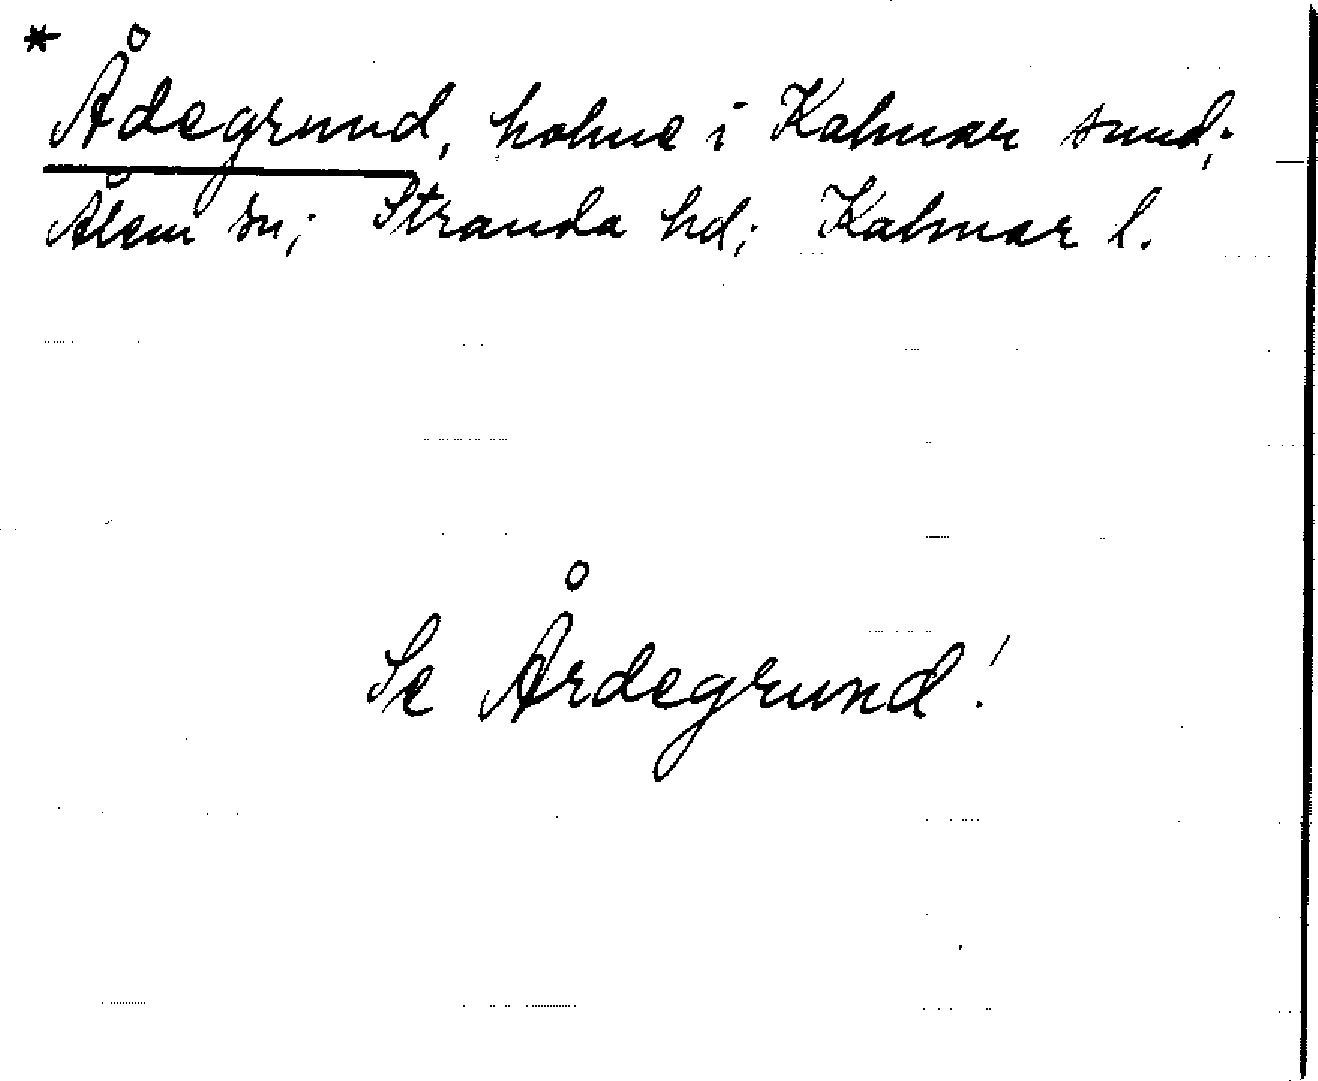 * Ådegrund, holme i Kalmar sund;
Ålem sn; Stranda hd; Kalmar l.
Se Årdegrund!